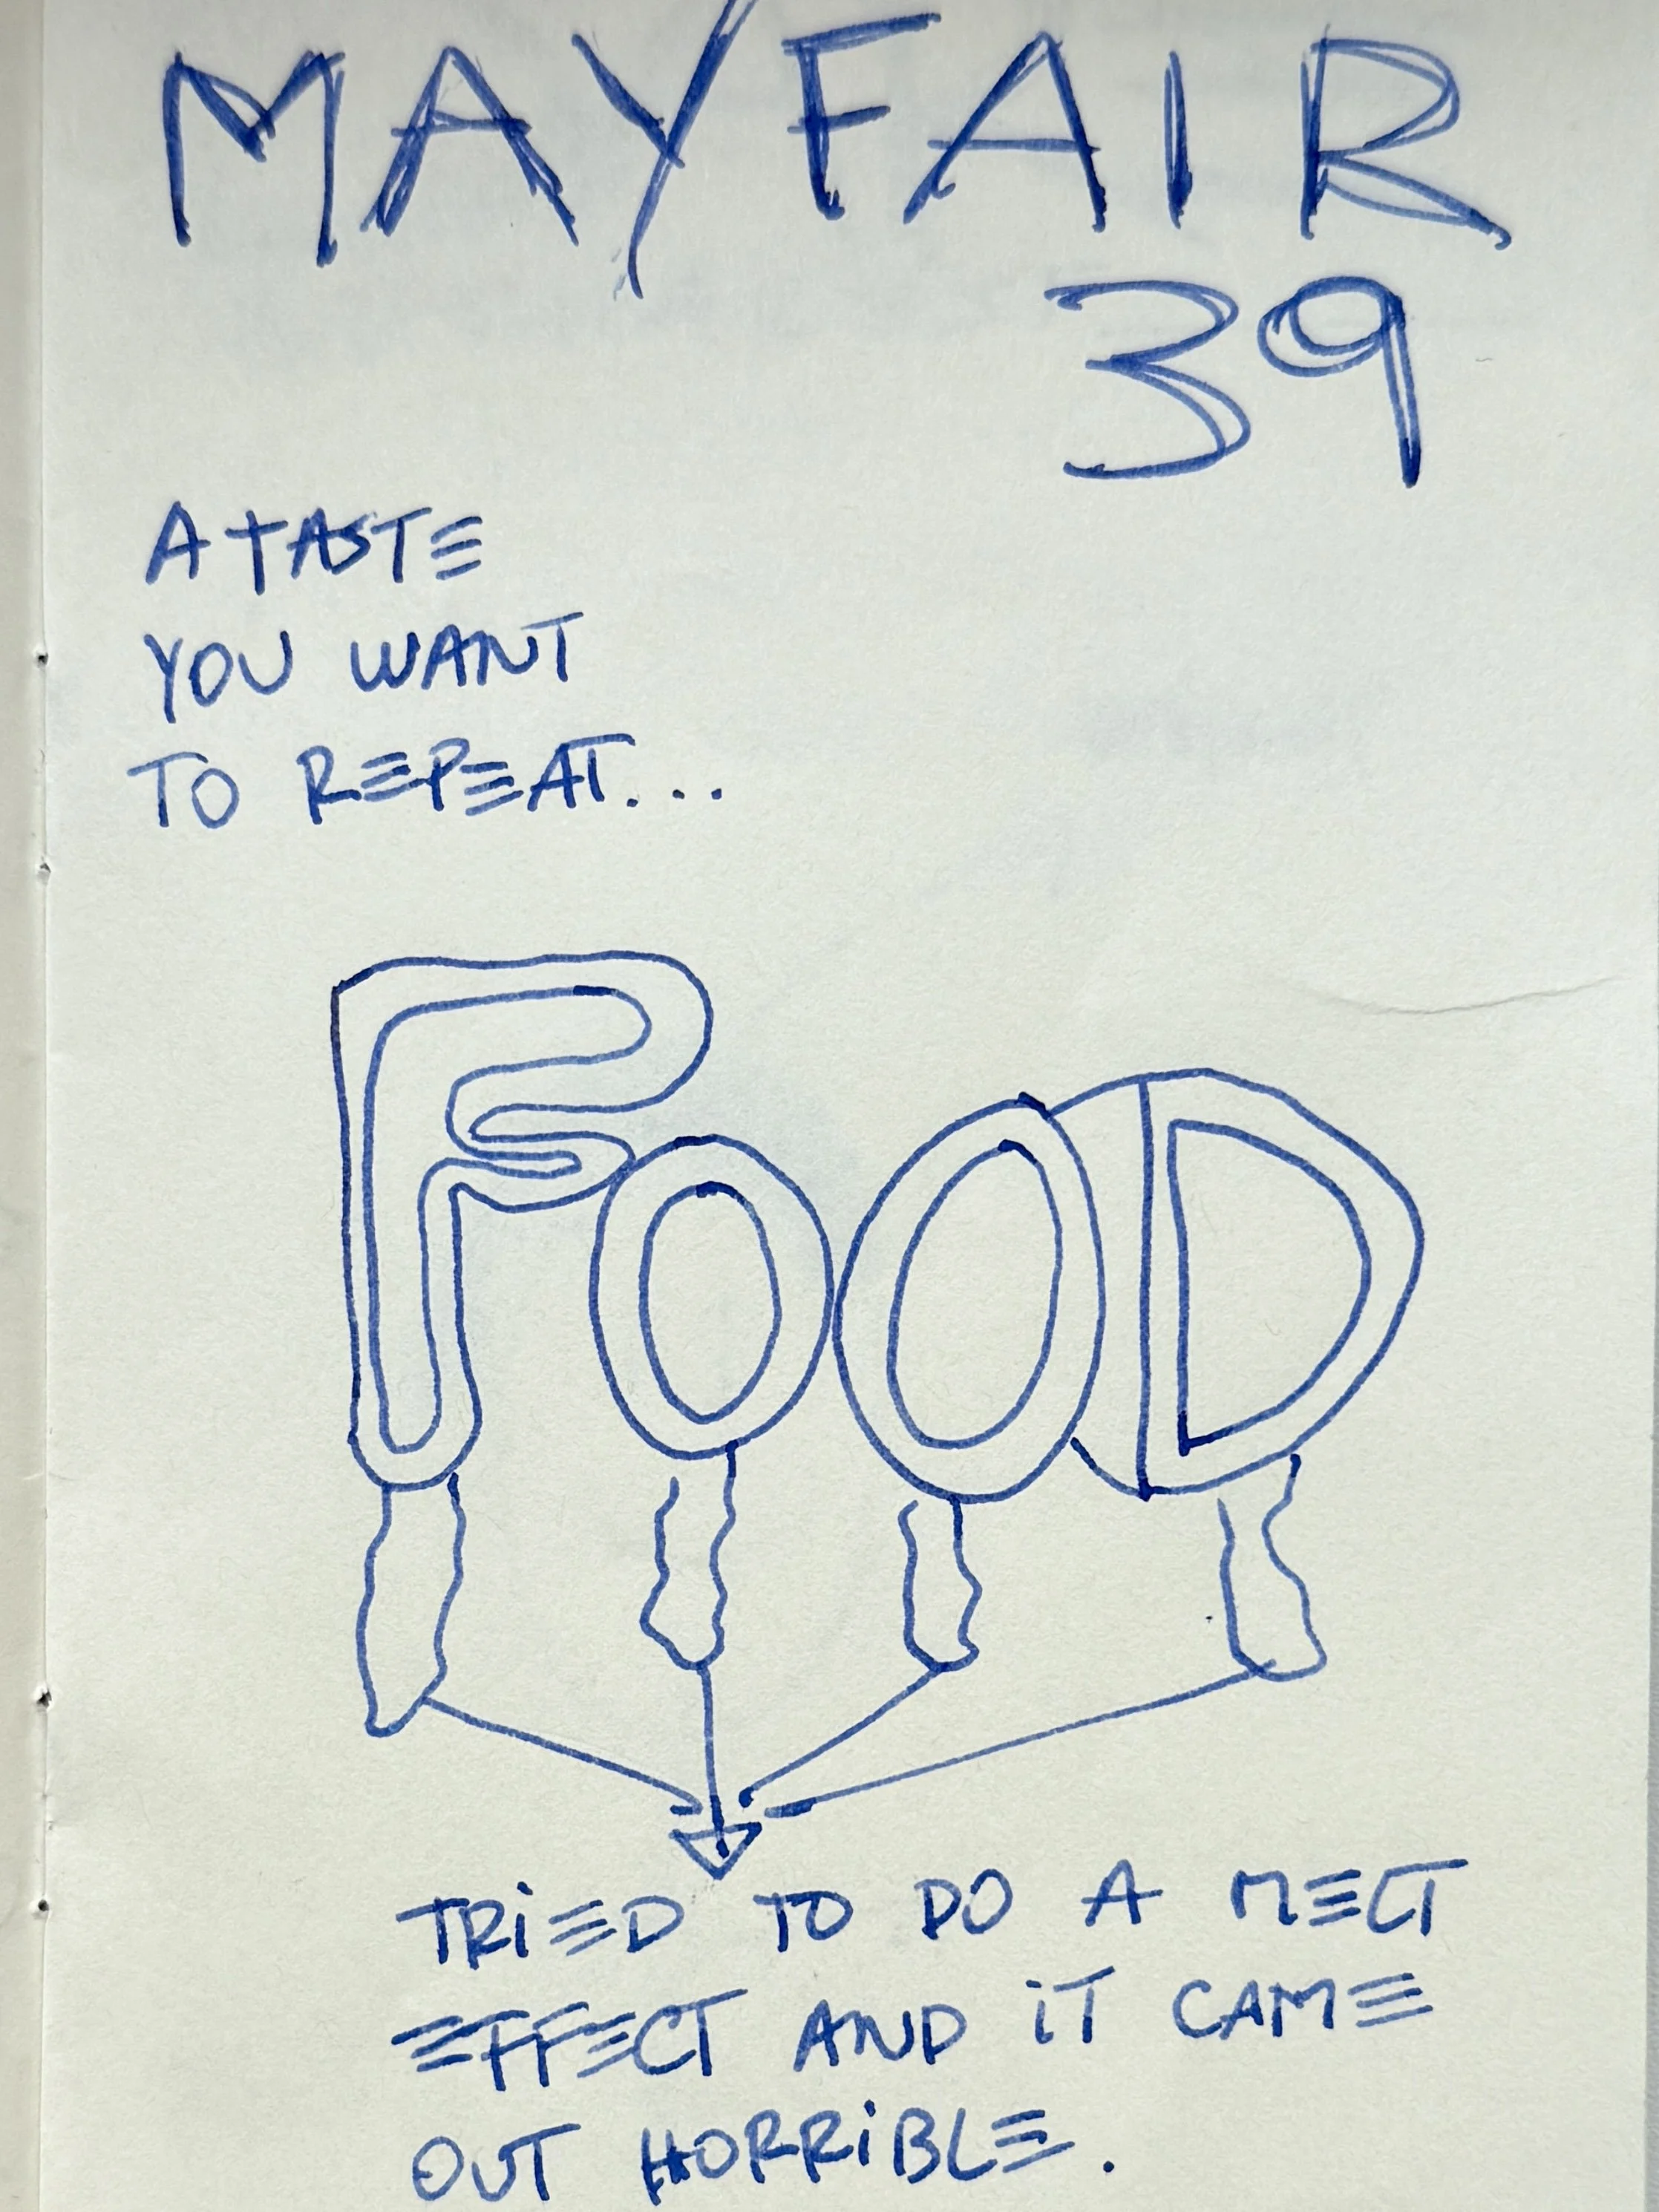 MAYFAIR
39
A TASTE
YOU WANT
TO REPEAT...
FOOD
TRIED TO DO A MELT
EFFECT AND IT CAME
OUT HORRIBLE.